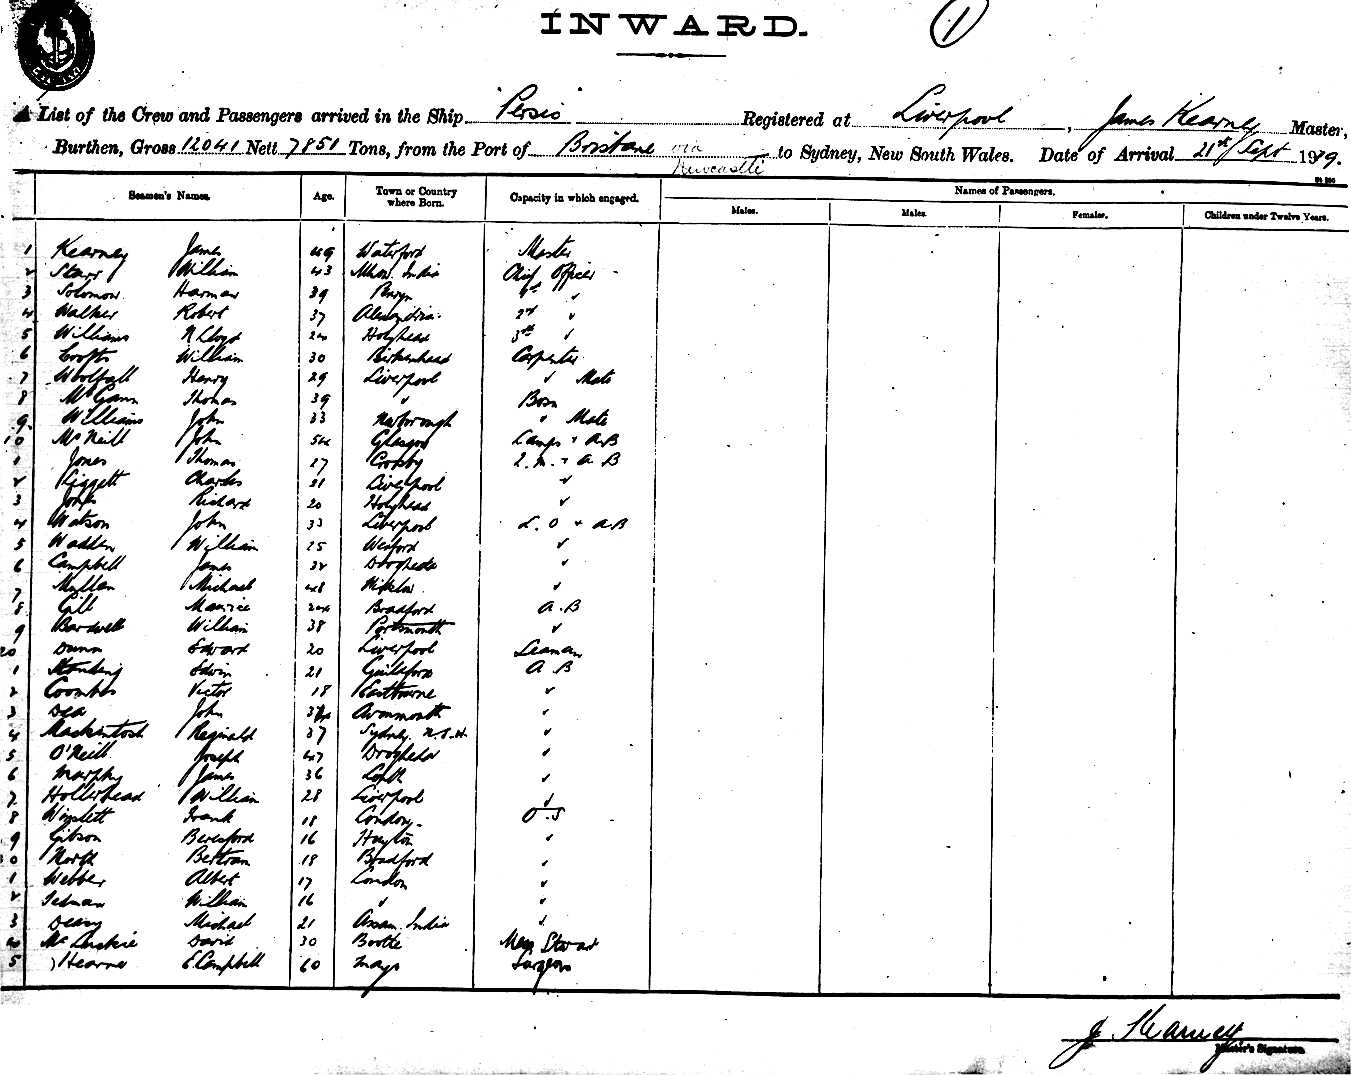 INWARD.
1
A List of the Crew and Passengers arrived in the Ship Persic Registered at Liverpool, James Kearney Master,
Burthen, Gross 12041 Nett 7851 Tons, from the Port of Brisbane via Newcastle to Sydney, New South Wales. Date of Arrival 21st Sept 1919.
Seamen's Names. Age. Town or Country where Born. Capacity in which engaged. Names of Passengers.
Males. Males. Females. Children under Twelve Years.
1 Kearney James 49 Waterford Master
2 Starr William 43 Mhow. India Chief Officer
3 Solomon Harman 39 1st "
4 Walker Robert 37 Alexandria 2nd "
5 Williams N Lloyd 24 Holyhead 3rd "
6 Crofts William 30 Birkenhead Carpenter
7 Woolfall Henry 29 Liverpool " Mate
8 McGann Thomas 39 " Bosn
9 Williams John 33 Newborough " Mate
10 McNeill John 54 Glasgow Lamps + AB
1 Jones Thomas 27 Crosby Q.M. + AB
2 Liggett Charles 21 Liverpool "
3 Jones Richard 20 Holyhead "
4 Watson John 33 Liverpool L.O + AB
5 Wadden William 25 Wexford "
6 Campbell James 32 Drogheda "
7 Mullen Michael 48 Wicklow "
8 Gill Maurice 24 Bradford A.B
9 Bardwell William 38 Portsmouth "
20 Dunn Edward 20 Liverpool Seaman
1 Edwin 21 Guildford A B
2 Coombes Victor 18 Eastbourne "
3 Dea John Avonmouth "
4 Mackintosh Reginald 37 Sydney. N.S.W. "
5 O'Neill Joseph 47 Drogheda "
6 Murphy James 36 Louth "
7 Hollerhead William 28 Liverpool "
8 Winslett Frank 18 London O.S
9 Gibson Beresford 16 Huyton "
30 North Bertram 18 Bradford "
1 Webber Albert 17 London "
2 William 16 " "
3 Deasy Michael 21 Assam. India "
4 McLuskie David 30 Bootle Mess Steward
5 Hearne E. Campbell 60 Mayo Surgeon
J Kearney
Master's Signature.